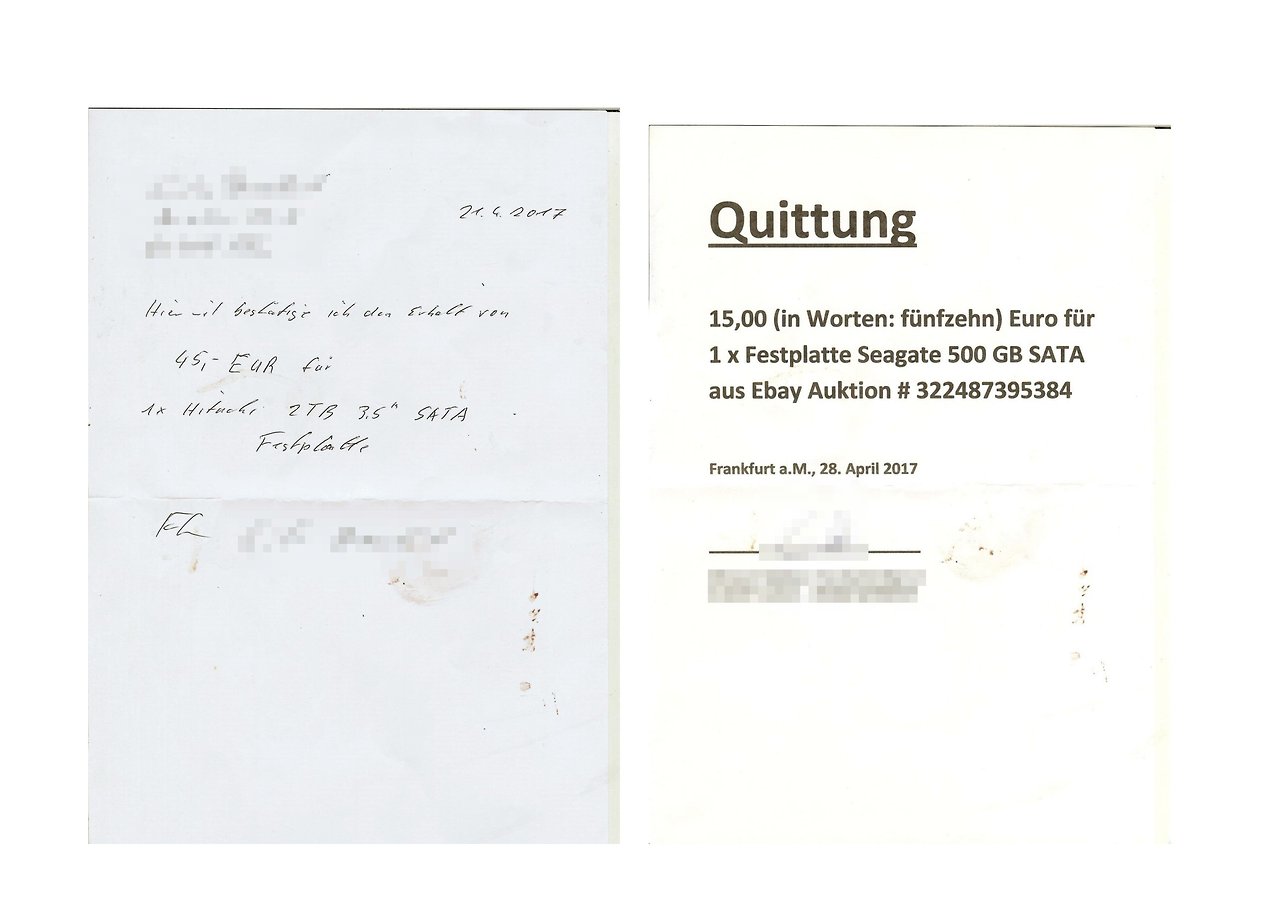 21.4.2017
Hiermit bestätige ich den Erhalt von
45,- EUR für
1x Hitachi 2TB 3.5" SATA
Festplatte
Quittung
15,00 (in Worten: fünfzehn) Euro für
1 x Festplatte Seagate 500 GB SATA
aus Ebay Auktion # 322487395384
Frankfurt a.M., 28. April 2017